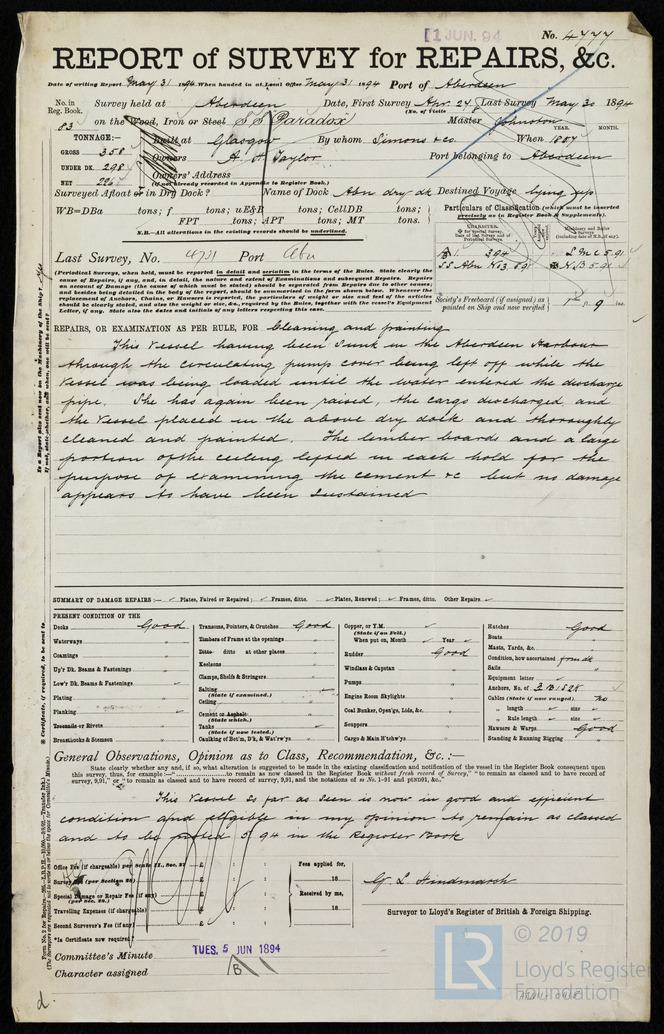 1 JUN. 94
No. 4777
REPORT of SURVEY for REPAIRS, &c.
Date of writing Report May 31 1894 When handed in at Local Office May 31 1894 Port of Aberdeen
No. in Reg. Book. Survey held at Aberdeen Date, First Survey Apr. 24 Last Survey May 30 1894
(No. of Visits
83 on the Wood, Iron or Steel SS Paradox Master Johnston
TONNAGE:— Built at Glasgow By whom Simons & Co. When
YEAR. MONTH.
GROSS 358 Owners Taylor Port belonging to Aberdeen
UNDER DK. 298 Owners' Address
NET (if not already recorded in Appendix to Register Book.)
Surveyed Afloat or in Dry Dock? Name of Dock Abn dry dk Destined Voyage lying up
WB=DBa tons; f tons; uE&B tons; CellDB tons;
FPT tons; APT tons; MT tons.
N.B.—All alterations in the existing records should be underlined.
Particulars of Classification (which must be inserted precisely as in Register Book & Supplements).
Last Survey, No. Port Abn
(Periodical Surveys, when held, must be reported in detail and seriatim in the terms of the Rules. State clearly the
cause of Repairs, if any, and, in detail, the nature and extent of Examinations and subsequent Repairs. Repairs
on account of Damage (the cause of which must be stated) should be separated from Repairs due to other causes;
and besides being detailed in the body of the report, should be summarised in the form shown below. Whenever the
replacement of Anchors, Chains, or Hawsers is reported, the particulars of weight or size and feel of the articles
should be clearly stated, and also the weight or size, &c., required by the Rules, together with the vessel's Equipment
Letter, if any. State also the dates and initials of any letters respecting this case.
Society's Freeboard (if assigned) as painted on Ship and now verified
REPAIRS, OR EXAMINATION AS PER RULE, FOR Cleaning and painting
This Vessel having been Sunk in the Aberdeen Harbour
through the circulating pump cover being left off while the
Vessel was being loaded until the water entered the discharge
pipe. She has again been raised, the cargo discharged and
the Vessel placed in the above dry dock and thoroughly
cleaned and painted. The limber boards and a large
portion of the ceiling lifted in each hold for the
purpose of examining the cement &c but no damage
appears to have been sustained
SUMMARY OF DAMAGE REPAIRS:— Plates, Faired or Repaired; Frames, ditto. Plates, Renewed; Frames, ditto. Other Repairs.
PRESENT CONDITION OF THE
Decks Good
Waterways "
Coamings "
Up'r Dk. Beams & Fastenings "
Low'r Dk. Beams & Fastenings
Plating "
Planking
Treenails or Rivets "
Breasthooks & Stemson "
Transoms, Pointers, & Crutches Good
Timbers of Frame at the openings
Ditto ditto at other places
Keelsons "
Clamps, Shelfs & Stringers "
Salting
(State if examined.)
Ceiling "
Cement or Asphalt
(State which.)
Tanks
(State if now tested.)
Caulking of Bot'm, D'k, & Wat'rw'ys
Copper, or Y.M.
(State if on Felt.)
When put on, Month Year
Rudder Good
Windlass & Capstan "
Pumps "
Engine Room Skylights "
Coal Bunker, Open'gs, Lids, &c. "
Scuppers "
Cargo & Main H'tchw'ys "
Hatches Good
Boats "
Masts, Yards, &c. "
Condition, how ascertained from dk
Sails "
Equipment letter
Anchors, No. of 3 B 1 S 2 K
Cables (State if now ranged) No
" length size
" Rule length size
Hawsers & Warps Good
Standing & Running Rigging "
General Observations, Opinion as to Class, Recommendation, &c.:—
State clearly whether any and, if so, what alteration is suggested to be made in the existing classification and notification of the vessel in the Register Book consequent upon
this survey, thus, for example:—"..........to remain as now classed in the Register Book without fresh record of Survey," "to remain as classed and to have record of
survey, 9,91," or "to remain as classed and to have record of survey, 9,91, and the notations of ss No. 1-91 and ptND91, &c."
This Vessel so far as seen is now in good and efficient
condition and eligible in my opinion to remain as classed
and to be noted 5 94 in the Register Book
Office Fee (if chargeable) per Scale II., Sec. 27 £ : : Fees applied for,
Survey Fee (per Section 28) £ : : 18
Special Damage or Repair Fee (if any) (per Sec. 28.) £ : : Received by me,
Travelling Expenses (if chargeable) £ : : 18
Second Surveyor's Fee (if any) £ : :
G L Hindmarsh
Surveyor to Lloyd's Register of British & Foreign Shipping.
*Is Certificate now required?
Committee's Minute TUES. 5 JUN 1894
Character assigned
© 2019
LR Lloyd's Register Foundation